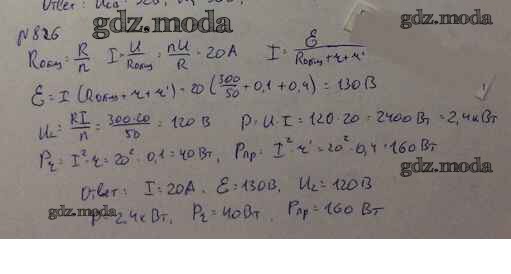 Ответ: U
gdz.moda
№826
Rобщ = R/n I = U/Rобщ = nU/R = 20A I = ℰ/(Rобщ + r + r')
ℰ = I (Rобщ + r + r') = 20 (300/50 + 0,1 + 0,4) = 130 В
U₂ = RI/n = 300·20/50 = 120 В P = U·I = 120·20 = 2400 Вт = 2,4 кВт
Pr = I²·r = 20²·0,1 = 40 Вт, Pпр = I²·r' = 20²·0,4 = 160 Вт
gdz.moda
Ответ: I = 20A. ℰ = 130В, U₂ = 120 В
gdz.moda
P = 2,4 кВт, Pr = 40 Вт, Pпр = 160 Вт
gdz.moda